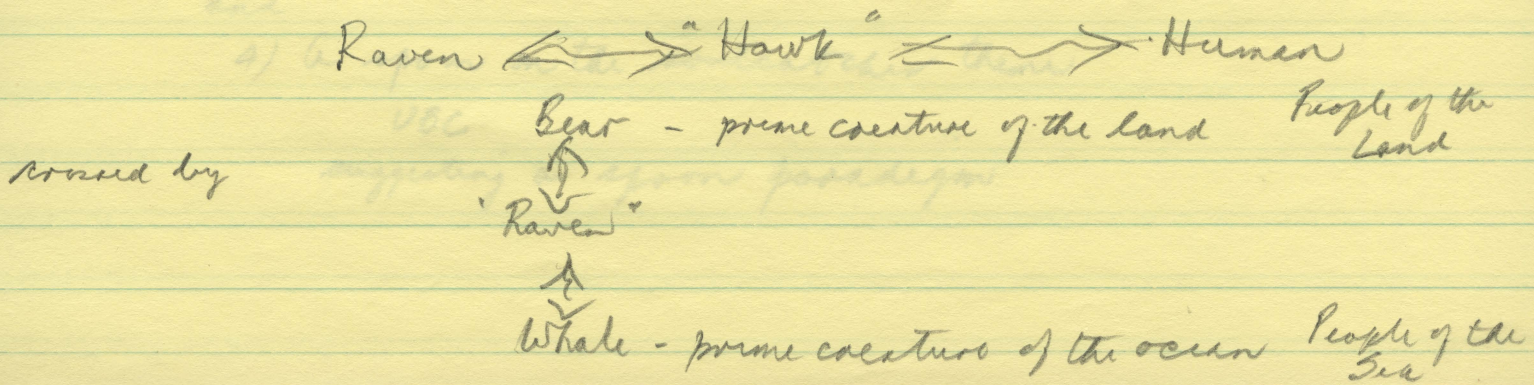 Raven <-> "Hawk" <-> Human
Bear - prime creature of the land People of the Land
crossed by
"Raven"
Whale - prime creature of the ocean People of the Sea